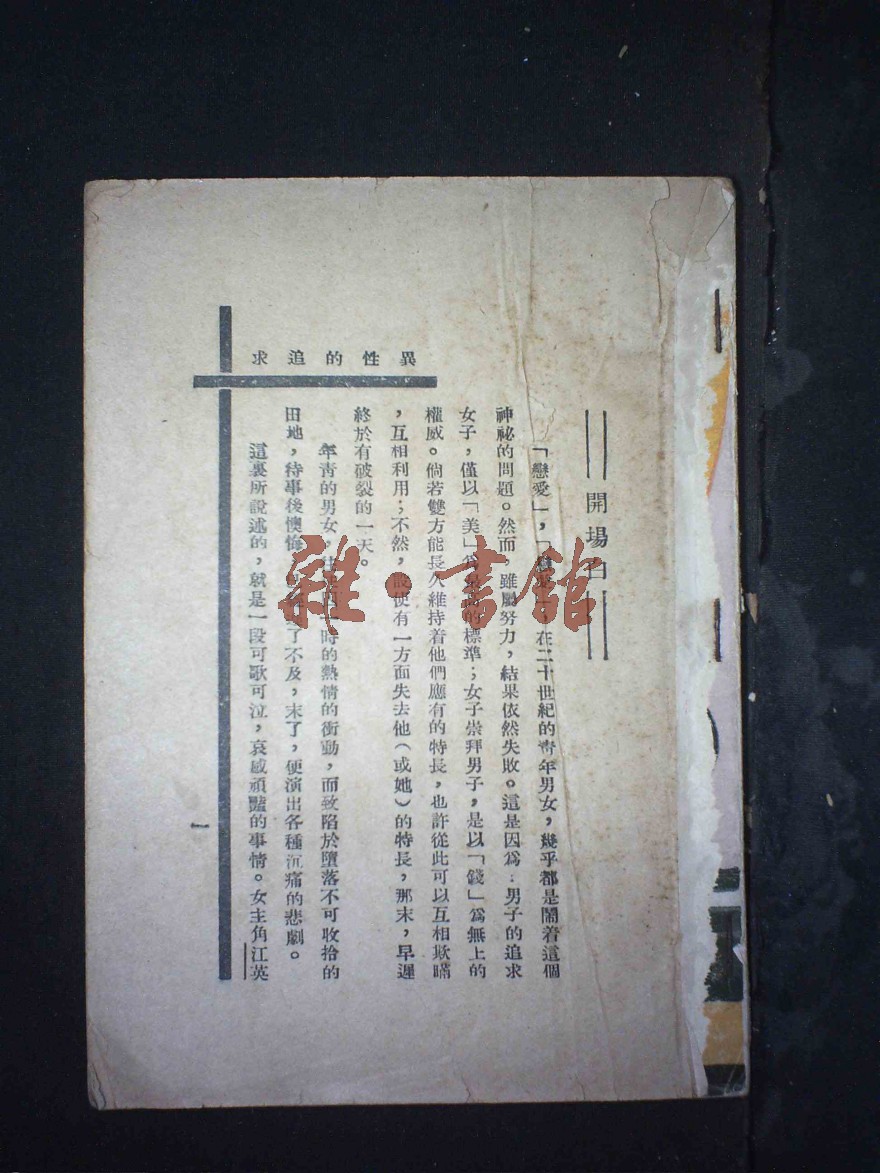 異性的追求
開場白
「戀愛」,「戀愛」在二十世紀的青年男女,幾乎都是鬧着這個
神祕的問題。然而,雖屬努力,結果依然失敗。這是因爲:男子的追求
女子,僅以「美」爲最高的標準;女子崇拜男子,是以「錢」爲無上的
權威。倘若雙方能長久維持着他們應有的特長,也許從此可以互相欺瞞
,互相利用;不然,設使有一方面失去他(或她)的特長,那末,早遲
終於有破裂的一天。
年靑的男女,往往因一時的熱情的衝動,而致陷於墮落不可收拾的
田地,待事後懊悔,了不及,末了,便演出各種沉痛的悲劇。
這裏所說述的,就是一段可歌可泣,哀感頑豔的事情。女主角江英
一
雜·書館